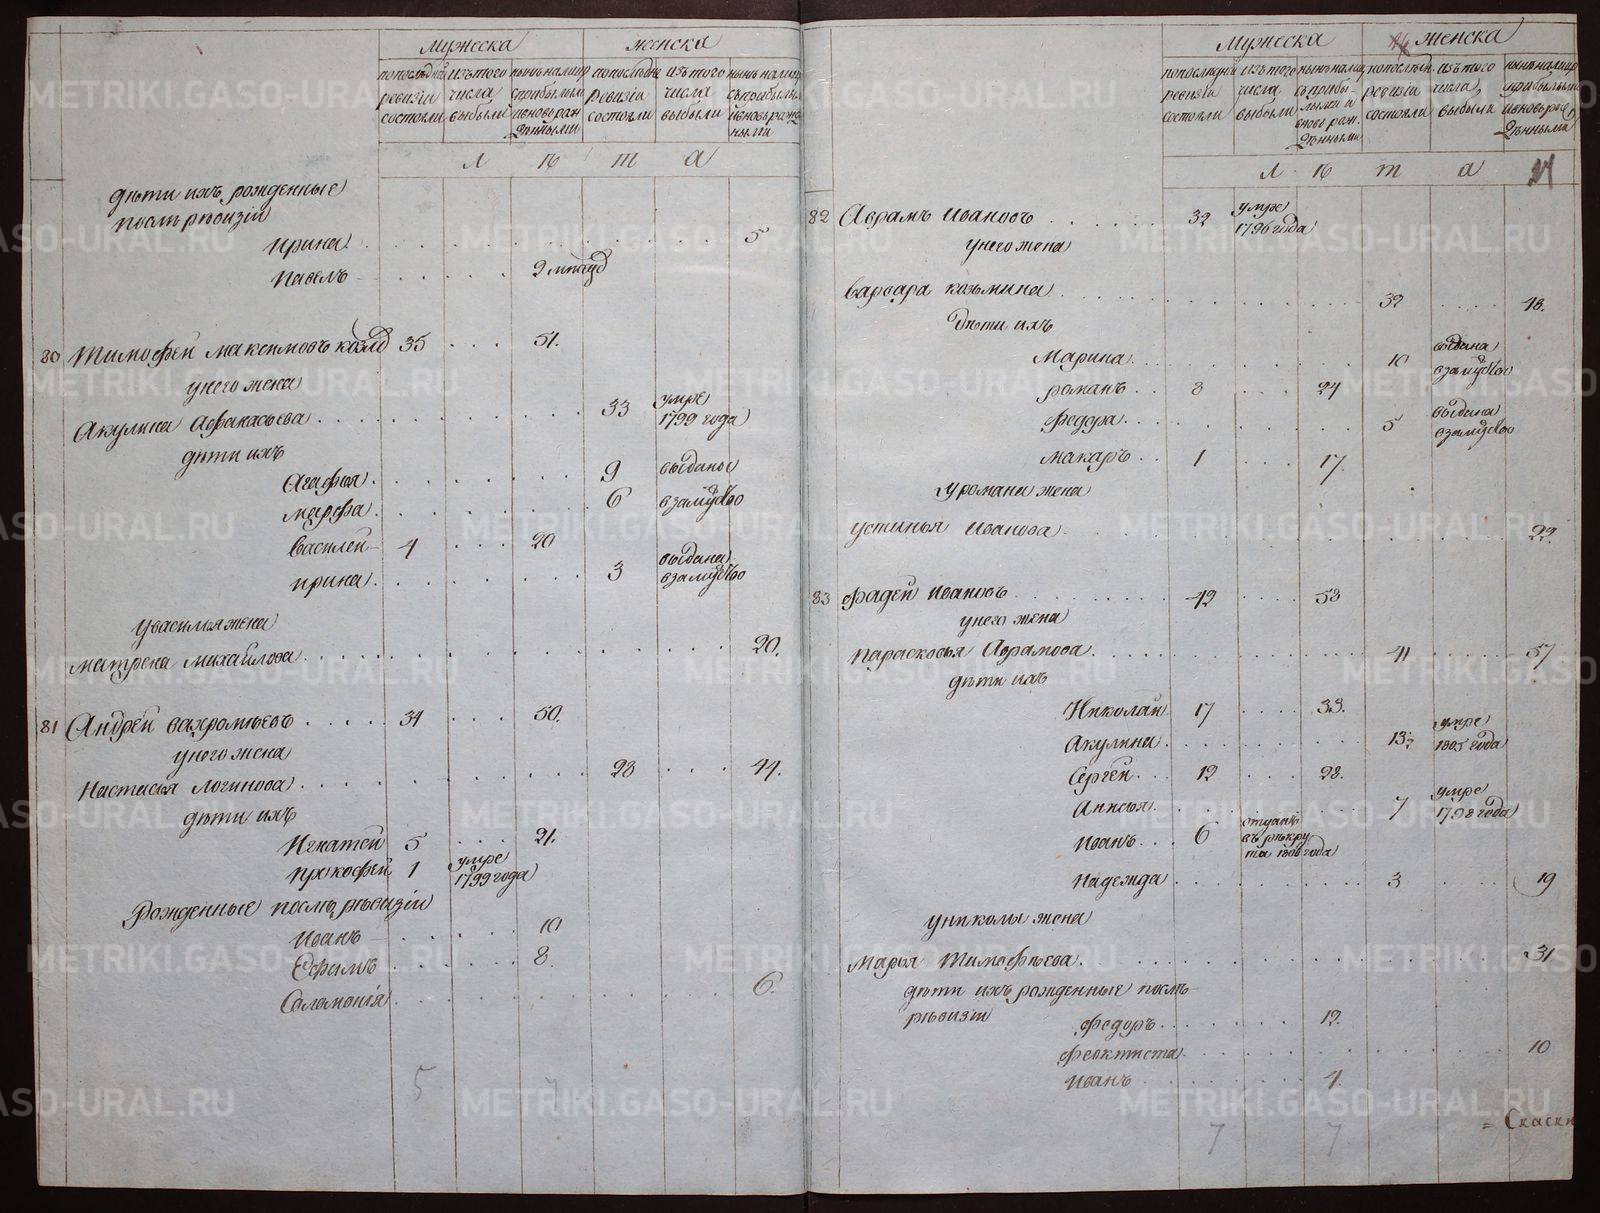 мужеска женска
попоследней ревизiи состояли
изътого числа выбыли
нынѣ налицо сприбылыми ивновь рожденными
попоследней ревизiи состояли
изътого числа выбыли
нынѣ налицо сприбылыми ивновь рожденными
л ѣ т а
дѣти ихъ рожденные
послѣ рѣвизiи
ирина 5
Павелъ 2 мѣсяц
80 Тимофей максимовъ 35 51.
унего жена
Акулина Афанасьева 33 умре 1799 года
дѣти ихъ
Агафья 9 выданы
марфа 6 взамужство
Василей 4 20
ирина 3 выдана взамужство
увасилья жена
матрена михайлова 20.
81 Андрей вахромѣевъ 34 50.
унего жена
Настасья Логинова 28 44.
дѣти ихъ
Игнатей 5 21.
прокофей 1 умре 1799 года
Рожденные послѣ рѣвизiи
Иванъ 10
Ефимъ 8.
Саломонiя 6.
5 7
мужеска женска
попоследней ревизiи состояли
изътого числа выбыли
нынѣ налицо съприбылыми и вновь рожденными
попоследней ревизiи состояли
изътого числа, выбыли
нынѣ налицо сприбылыми ивновь рожденными
л ѣ т а
82 Аврамъ Ивановъ 32 умре 1796 года
унего жена
Варвара козьмина 32 48.
дѣти ихъ
Марина 10 выдана взамужство
романъ 8 24
федора 5 выдана взамужство
макаръ 1 17.
уромана жена
устинья Иванова 22.
83 Фадей Ивановъ 42 58
унего жена
парасковья Аврамова 41 57
дѣти ихъ
Николай 17 33.
Акулина 13 умре 1805 года
Сергей 12 28.
Анисья 7 умре 1798 года
Иванъ 6 отданъ въ рѣкрута 1806 года
Надежда 3 19
униколы жена
Марья Тимофѣева 31
дѣти ихъ рожденные послѣ
рѣвизiи
федоръ 12.
феоктиста 10
Иванъ 4
7 7
= Скаски
METRIKI.GASO-URAL.RU